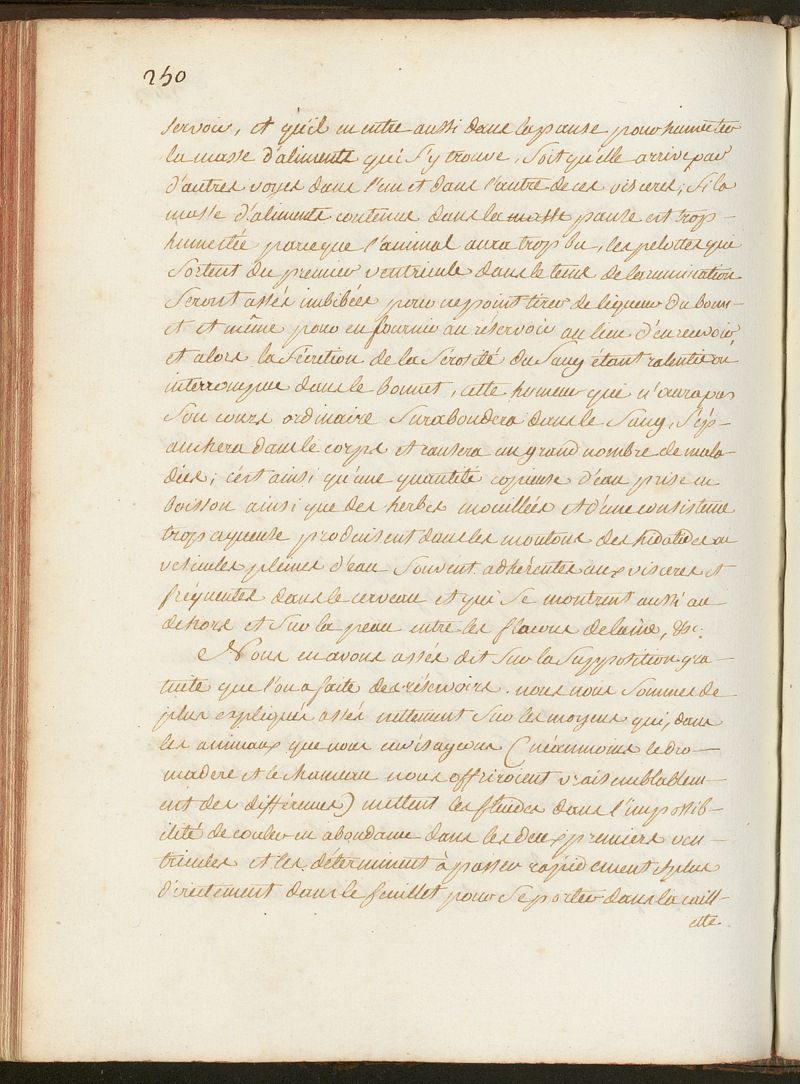 250
servoir, et qu'il en entre aussi dans la panse pour humecter
la masse d'aliments qui s'y trouve, soit qu'elle arrive par
d'autres voyes dans l'un et dans l'autre de ces visceres; si la
masse d'aliments contenue dans la masse panse est trop-
humectée parceque l'animal aura trop bu, les pelottes qui
sortent du premier ventricule dans le tems de la rumination
seront assés imbibées pour ne point tirer de liqueur du bonn-
et et même pour en fournir au réservoir au lieu d'en recevoir,
et alors la sécretion de la sérosité du sang étant ralentie ou
interrompue dans le bonnet, cette humeur qui n'aura pas
son cours ordinaire surabondera dans le sang, s'ép-
anchera dans le corps et causera un grand nombre de mala-
dies; c'est ainsi qu'une quantité copieuse d'eau prise en
boisson ainsi que des herbes mouillées et d'une consistence
trop aqueuse produisent dans les moutons des hidatides ou
vesicules pleines d'eau souvent adhérentes aux visceres et
fréquentes dans le cerveau et qui se montrent aussi au
dehors et sur la peau entre les flocons de laine, &c.
Nous en avons assés dit sur la supposition gra-
tuite que l'on a faite des réservoirs. nous nous sommes de
plus expliqués assés nettement sur les moyens qui, dans
les animaux que nous envisageons (néanmoins le dro-
madere et le chameau nous offriroient vraisemblablem-
ent des différences) mettent les fluides dans l'impossib-
ilité de couler en abondance dans les deux premiers ven-
tricules et les déterminent à passer rapidement et plus
directement dans le feuillet pour se porter dans la caill-
ette